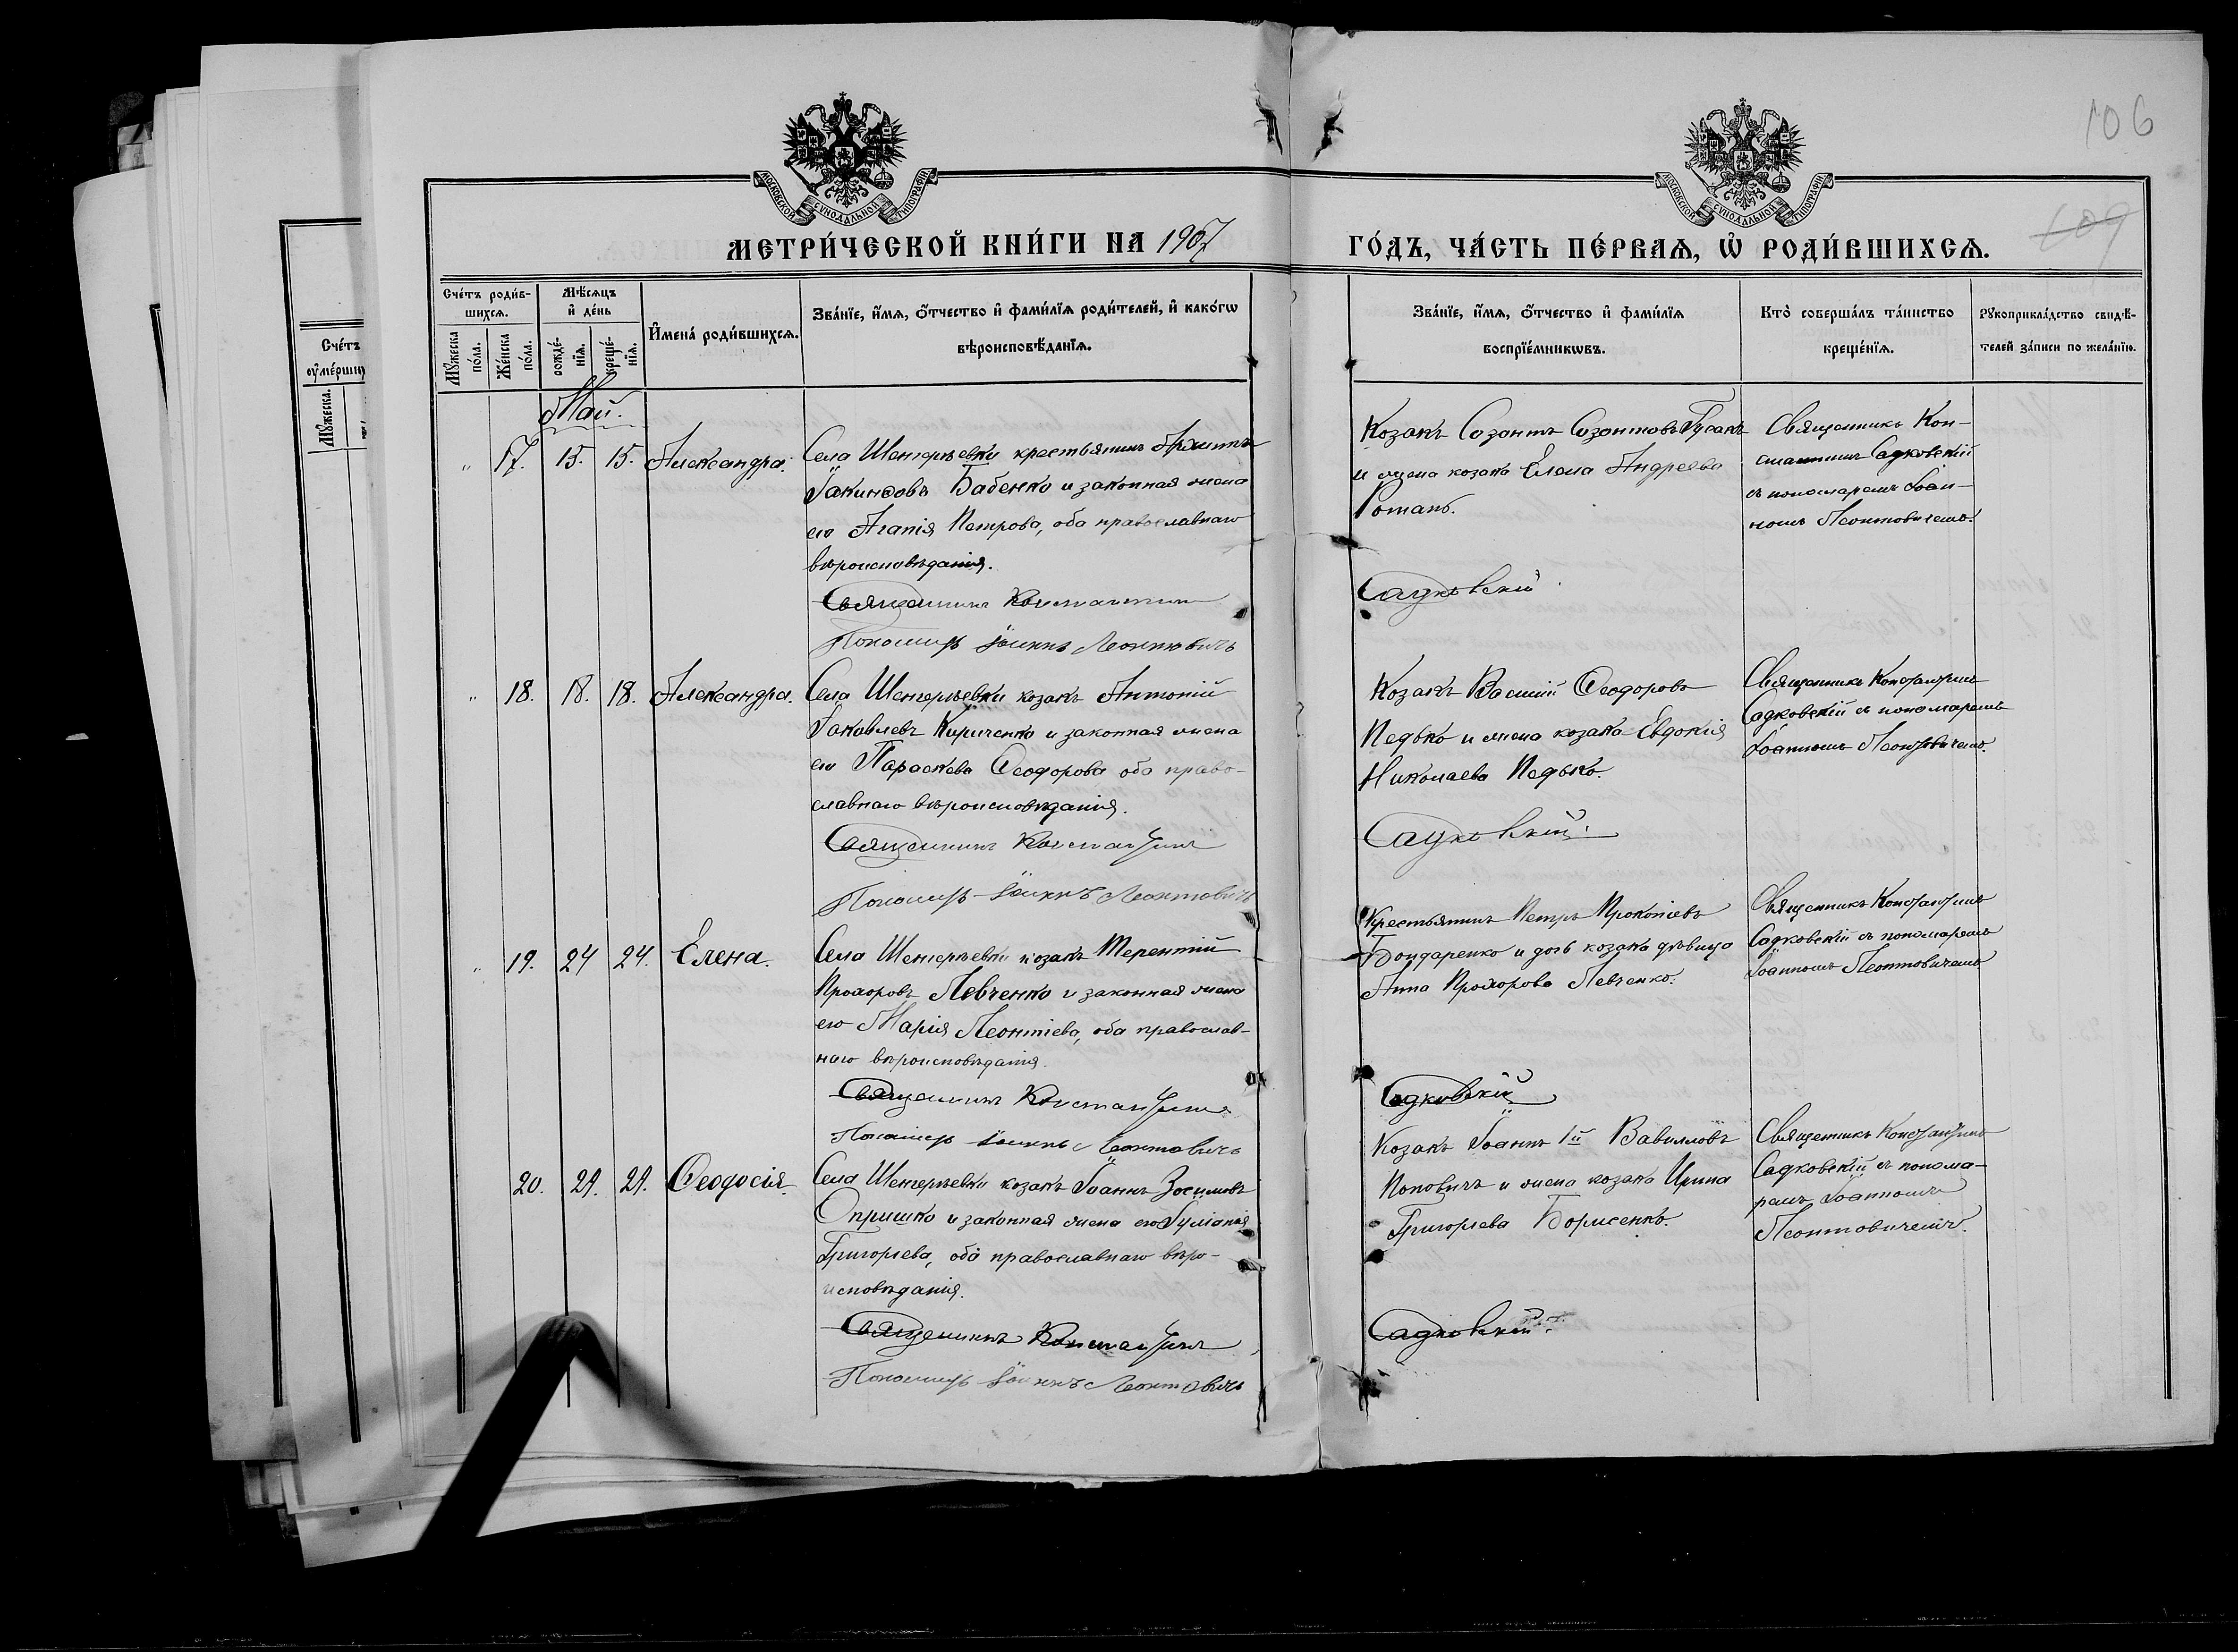 106
609
МОСКОВСКОЙ СУНОДАЛЬНОЙ ТИПОГРАФІИ
МОСКОВСКОЙ СУНОДАЛЬНОЙ ТИПОГРАФІИ
МЕТРИ́ЧЕСКОЙ КНИ́ГИ НА 1907
ГО́ДЪ, ЧА́СТЬ ПЕ́РВАЯ, Ѡ҆ РОДИ́ВШИХСЯ.
Сче́тъ
ѹ҆ме́рши
Мꙋжеска.
Сче́тъ роди́в-
шихся.
Мꙋжеска по́ла.
Же́нска по́ла.
Мѣ́сяцъ
и҆ де́нь
рожде́-нїѧ.
креще́-нїѧ.
И҆мена̀ роди́вшихсѧ.
Зва́нїе, и҆́мѧ, ѻ҆́тчество и҆ фами́лїѧ роди́телей, и҆ како́гѡ
вѣроисповѣ́данїѧ.
Зва́нїе, и҆́мѧ, ѻ҆́тчество и҆ фами́лїѧ
воспрїе́мникѡвъ.
Кто̀ соверша́лъ та́инство
креще́нїѧ.
Рꙋкоприкла́дство свидѣ́-
телей за́писи по жела́нїю.
Май.
" 17. 15. 15. Александра.
Села Шенгерѣевки крестьянинъ Архиппъ
Іакинѳовъ Бабенко и законная жена
его Агапія Петрова, оба православнаго
вѣроисповѣданія.
Священникъ Константинъ
Пономарь Іоаннъ Леонтовичъ
Козакъ Созонтъ Созонтовъ Гусакъ
и жена козака Елена Андреева
Ротань.
Садковскій
Священникъ Кон-
стантинъ Садковскій
съ пономаремъ Іоан-
номъ Леонтовичемъ.
" 18. 18. 18. Александра.
Села Шенгерѣевки козакъ Антоній
Іаковлевъ Кириченко и законная жена
его Параскева Ѳеодорова оба право-
славнаго вѣроисповѣданія.
Священникъ Константинъ
Пономарь Іоаннъ Леонтовичъ
Козакъ Василій Ѳеодоровъ
Педько и жена козака Евдокія
Николаева Педько.
Садковскій.
Священникъ Константинъ
Садковскій съ пономаремъ
Іоанномъ Леонтовичемъ.
" 19. 24 24. Елена.
Села Шенгерѣевки козакъ Терентій
Прохоровъ Левченко и законная жена
его Марія Леонтіева, оба православ-
наго вѣроисповѣданія.
Священникъ Константинъ
Пономарь Іоаннъ Леонтовичъ
Крестьянинъ Петръ Прокопіевъ
Бондаренко и дочь козака дѣвица
Анна Прохорова Левченко.
Садковскій
Священникъ Константинъ
Садковскій съ пономаремъ
Іоанномъ Леонтовичемъ.
20. 29. 29. Ѳеодосія.
Села Шенгерѣевки козакъ Іоаннъ Зосимовъ
Опришко и законная жена его Іуліанія
Григорьева, оба православнаго вѣро-
исповѣданія.
Священникъ Константинъ
Пономарь Іоаннъ Леонтовичъ
Козакъ Іоаннъ 1й Вавиловъ
Поповичъ и жена козака Ирина
Григорьева Борисенко.
Садковскій.
Священникъ Константинъ
Садковскій съ понома-
ремъ Іоанномъ
Леонтовичемъ.